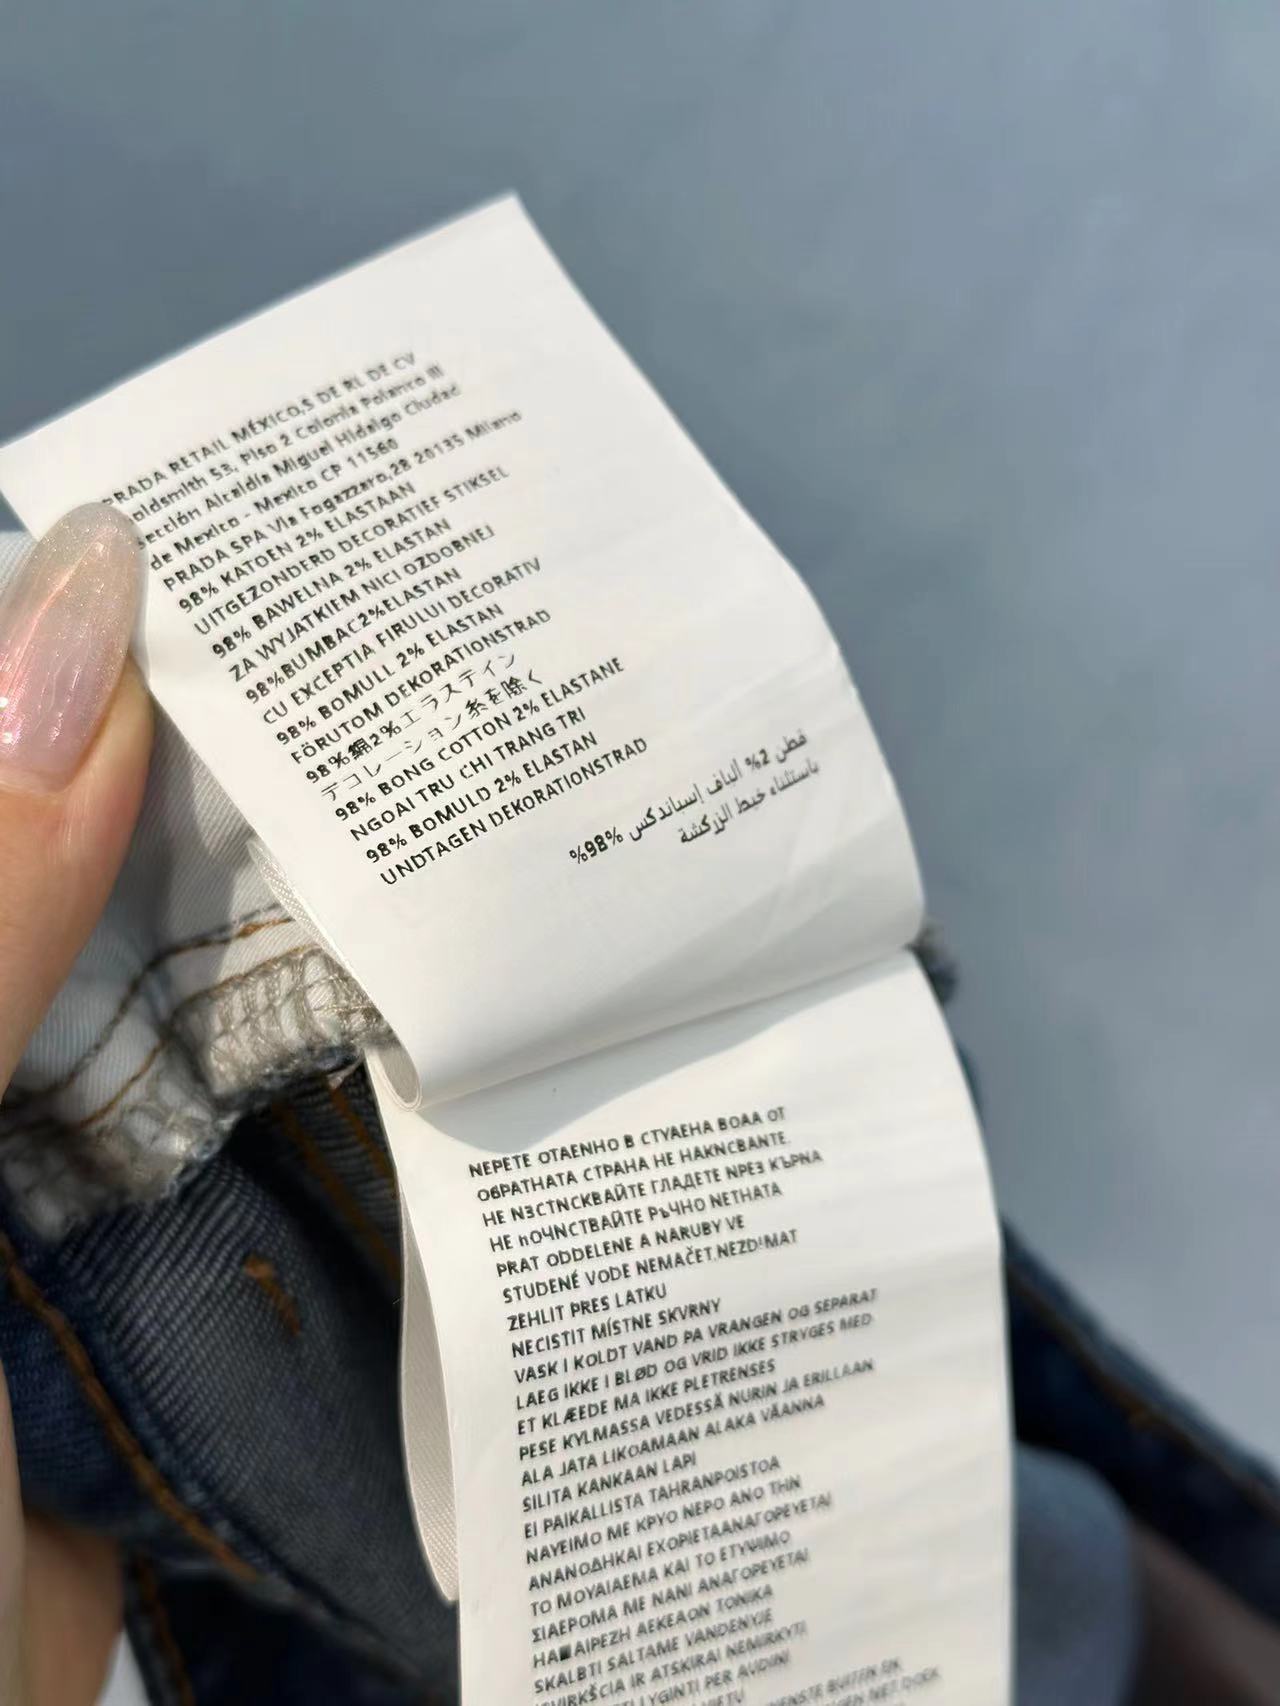 PRADA RETAIL MÉXICO,S DE RL DE CV
oldsmith 53, Piso 2 Colonia Polanco III
sección Alcaldía Miguel Hidalgo Ciudad
de Mexico - Mexico CP 11560
PRADA SPA Via Fogazzaro,28 20135 Milano
98% KATOEN 2% ELASTAAN
UITGEZONDERD DECORATIEF STIKSEL
98% BAWELNA 2% ELASTAN
ZA WYJATKIEM NICI OZDOBNEJ
98%BUMBAC2%ELASTAN
CU EXCEPTIA FIRULUI DECORATIV
98% BOMULL 2% ELASTAN
FÖRUTOM DEKORATIONSTRAD
98%綿2%エラステイン
デコレーション糸を除く
98% BONG COTTON 2% ELASTANE
NGOAI TRU CHI TRANG TRI
98% BOMULD 2% ELASTAN
UNDTAGEN DEKORATIONSTRAD
قطن 2% ألياف إسباندكس 98%%
باستثناء خيط الزركشة
NEPETE OTAENHO B CTYAEHA BOAA OT
OБPATHATA CTPAHA HE HAKNCBANTE.
HE NЗCTNCKBAЙTE ГЛAДETE NPEЗ KЪPNA
HE ПOЧNCTBAЙTE PЪЧHO NETHATA
PRAT ODDELENE A NARUBY VE
STUDENÉ VODE NEMAČET.NEZD!MAT
ZEHLIT PRES LATKU
NECISTIT MÍSTNE SKVRNY
VASK I KOLDT VAND PA VRANGEN OG SEPARAT
LAEG IKKE I BLØD OG VRID IKKE STRYGES MED
ET KLÆEDE MA IKKE PLETRENSES
PESE KYLMASSA VEDESSÄ NURIN JA ERILLAAN
ALA JATA LIKOAMAAN ALAKA VÄANNA
SILITA KANKAAN LAPI
EI PAIKALLISTA TAHRANPOISTOA
NAYEIMO ME KPYO NEPO ANO THN
ANANOΔHKAI EXOPIETAANAΓOPEYETAI
TO MOYAIAEMA KAI TO ETYΨIMO
ΣIAEPOMA ME NANI ANAΓOPEYETAI
HA■AIPEZH AEKEAON TONIKA
SKALBTI SALTAME VANDENYJE
IŠVIRKŠCIA IR ATSKIRAI NEMIRKYTI
LYGINTI PER AUDINI